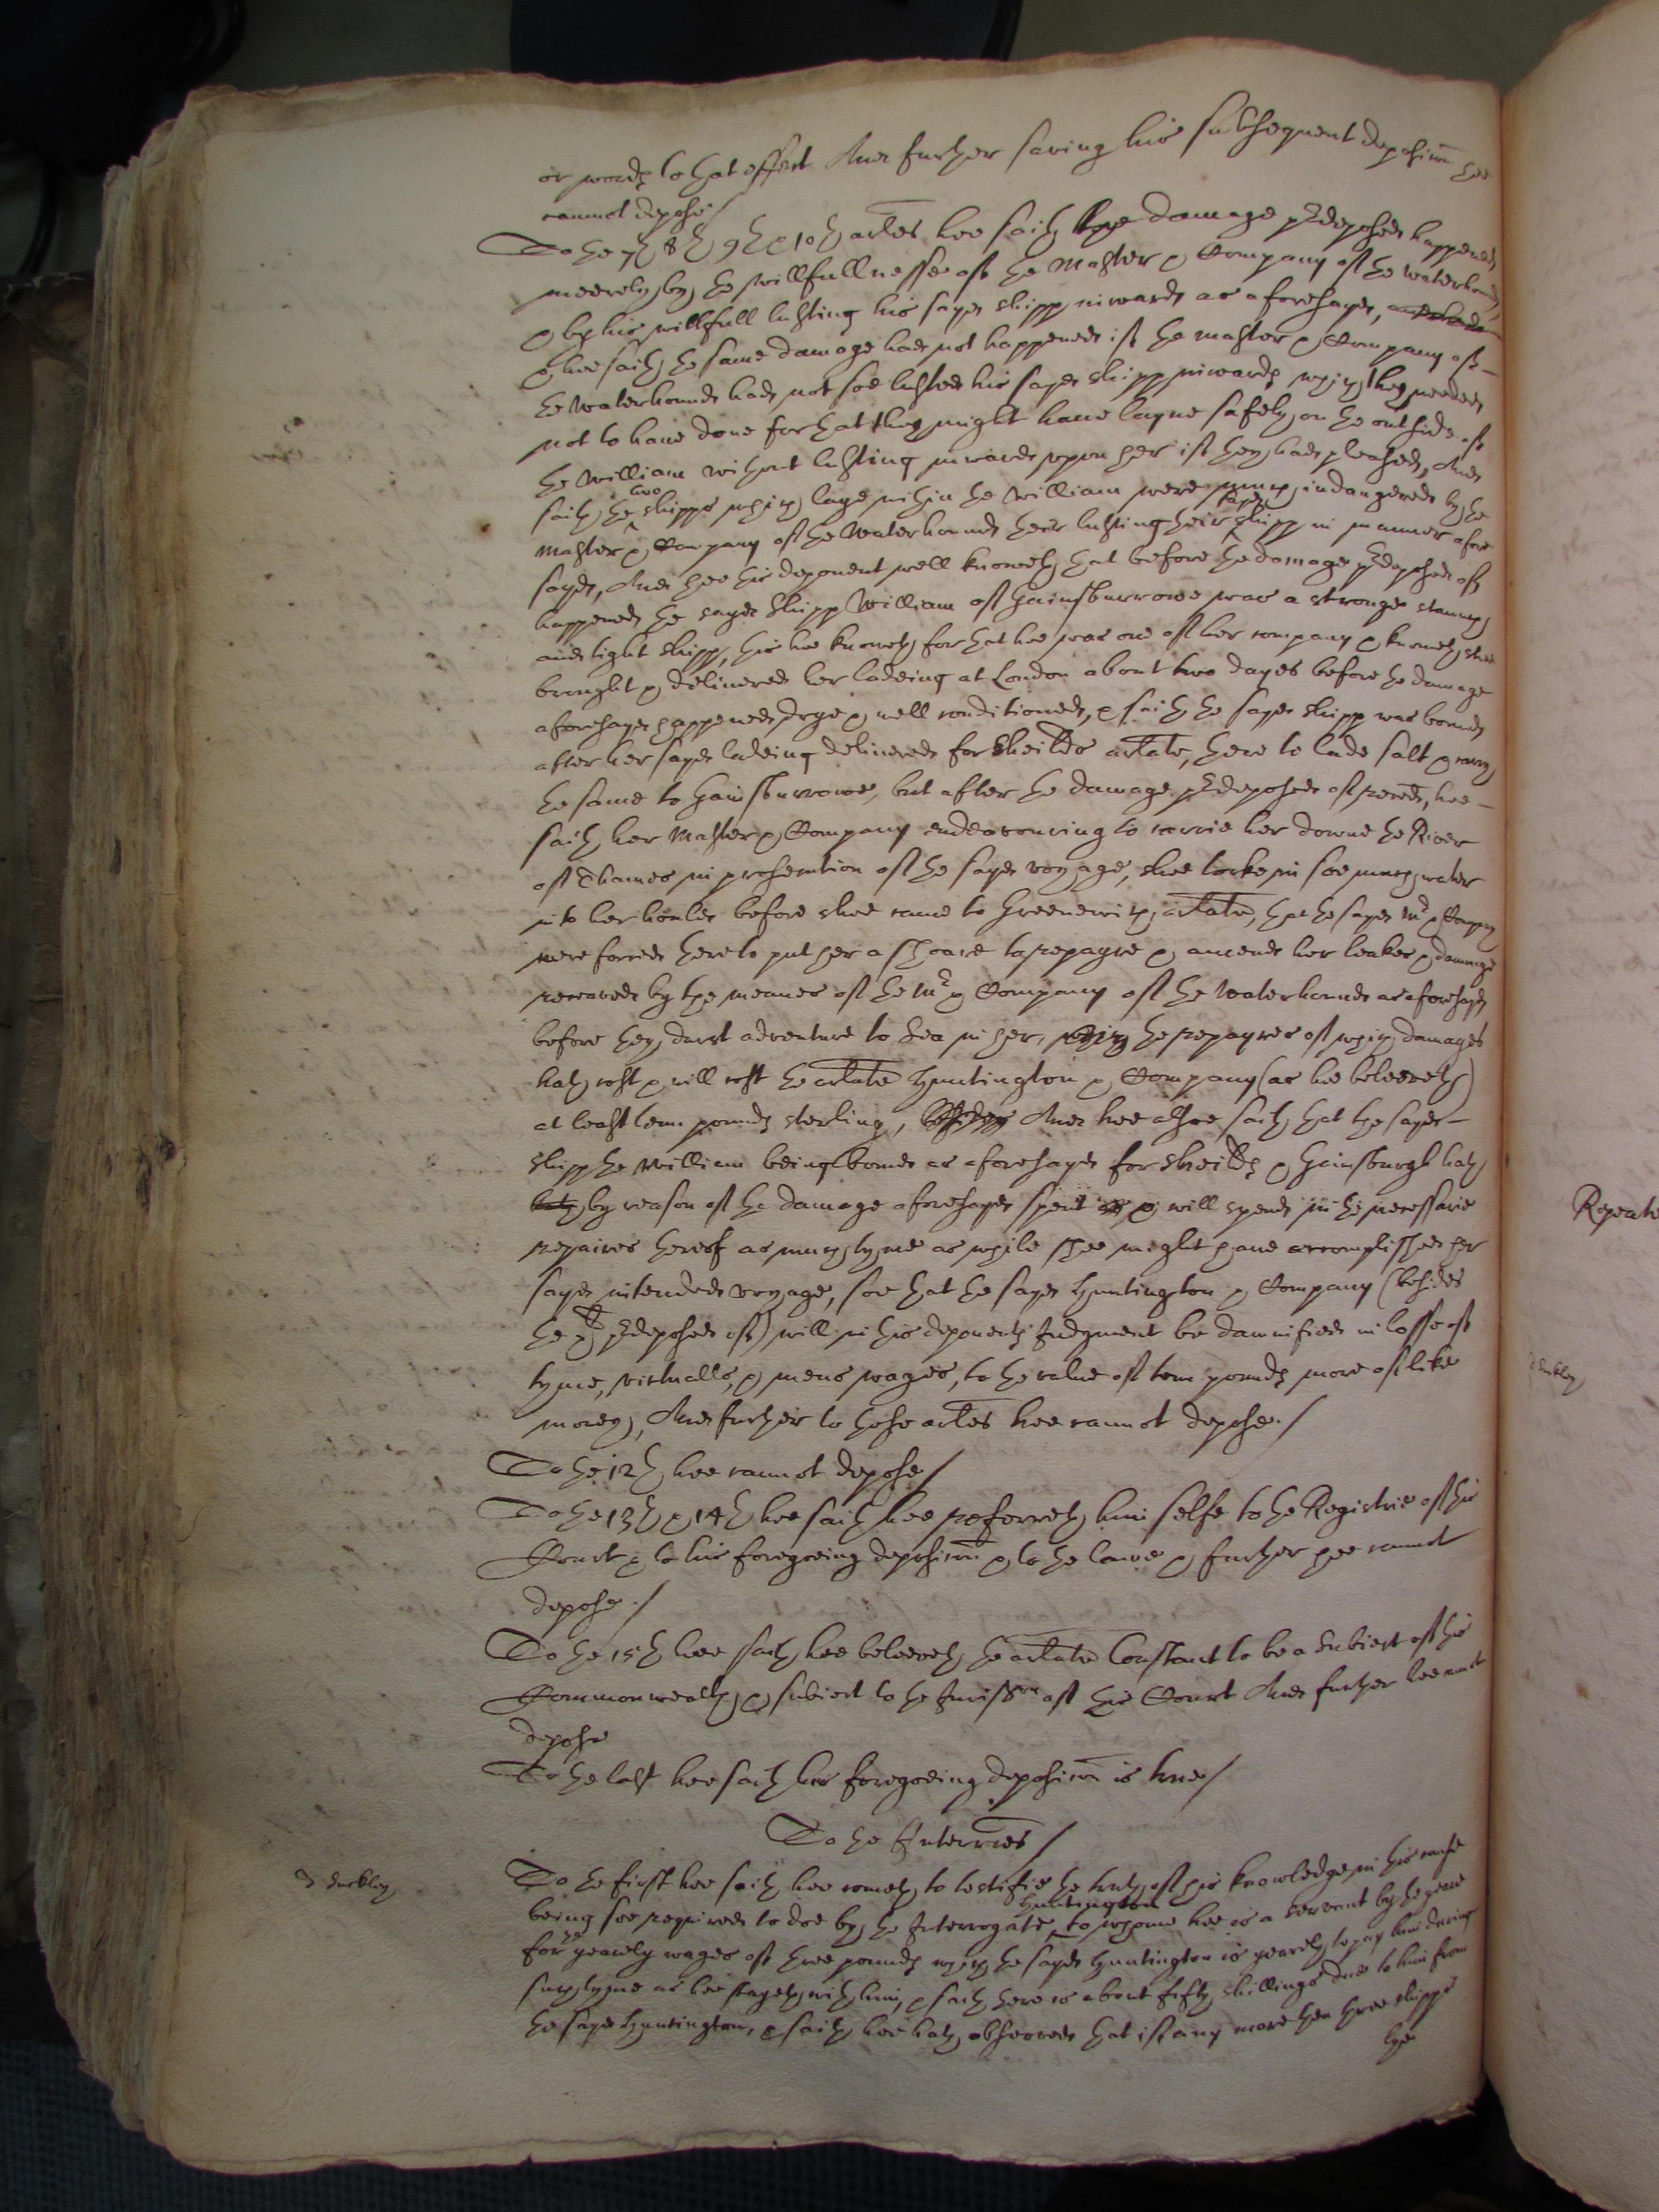 or words to that effect And further saving his subsequent deposicon hee
cannot depose/
To the 7th 8th 9th & 10th arles hee saith the damage predeposed happened
meerely by the willfullnesse of the Master & Company of the waterhound
& by his willfull lusting his sayd shipp inwards as aforesayd,
& hee saith the same damage had not happened if the master & Company of
the Waterhound had not soe lusted his sayd shipp inwards which they needed
not to have done for that they might have layne safely on the outside of
the William without lusting inwards uppon her if they had pleased, And
saith the two shipps which laye within the William were much indangered by the
Master & Company of the Waterhound their lusting their sayd shipp in manner afore
sayd, And hee this deponent well knoweth that before the damage predeposed of
happened the sayd shipp William of Gainsburrowe was a stronge stanch
and tight shipp, this hee knoweth for that hee was one of her company & knoweth shee
brought & delivered her ladeing at London about two dayes before the damage
aforesayd happened drye & well conditioned, & saith the sayd shipp was bound
after her sayd ladeing delivered for Sheilds arlate, there to lade salt & carry
the same to Gainsburrowe, but after the damage predeposed of received, hee
saith her Master & Company endeavouring to carrie her downe the River
of Thames in prosecution of the sayd voyage, shee tooke in soe much water
into her hould before shee came to Greenewich arlate, that the sayd Mr & Company
were forced there to put her a shoare to repayre & amend her leakes & damage
received by the meanes of the Mr & Company of the Waterhound as aforesayd
before they durst adventure to Sea in her, which the repayres of which damages
hath cost & will cost the arlate Huntington & Company (as hee beleeveth)
at least tenn pounds sterling, And hee alsoe saith that the sayd
shipp the William being bound as aforesayd for Sheilds & Gainsburgh hath
hath by reason of the damage aforesayd spent & will spend in the necessarie
repaires thereof as much tyme as while shee might have accomplished her
sayd intended voyage, soe that the sayd Huntington & Company (besides
the predeposed of) will in his deponents Judgment be damnified in losse of
tyme, victualls, & mens wages, to the value of tenn pounds more of like
money, And further to these arles hee cannot depose./
To the 12th hee cannot depose/
To the 13th & 14th hee saith hee referreth him selfe to the Registrie of this
Court & to his foregoeing deposicon & to the lawe & further hee cannot
depose./
To the 15th hee saith hee beleeveth the arlate Constant to be a Subiect of this
Commonwealth & subiect to the Jurisdcon of this Court And further hee cannot
depose
To the last hee saith his foregoeing deposicon is true/
To the Interries/
To the first hee saith hee cometh to testifie the truth of his knowledge in this cause
being soe required to doe by the Interrogate Huntington to whome hee is a servant by the yeare
for the yearely wages of three pounds which the sayd Huntington is yearely to pay him during
such tyme as hee stayeth with him, & saith there is about fifty shillings due to him from
the sayd Huntington, & saith hee hath observed that if any more then three shipps
lye
Repeate